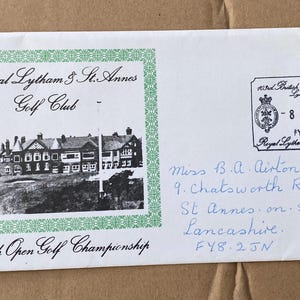 al Lytham & St. Annes
Golf Club
t Open Golf Championship
103rd British
- 8
Royal Lytha
Miss B. A. Airton
9. Chatsworth R
St Annes. on. S
Lancashire.
FY8. 2JN